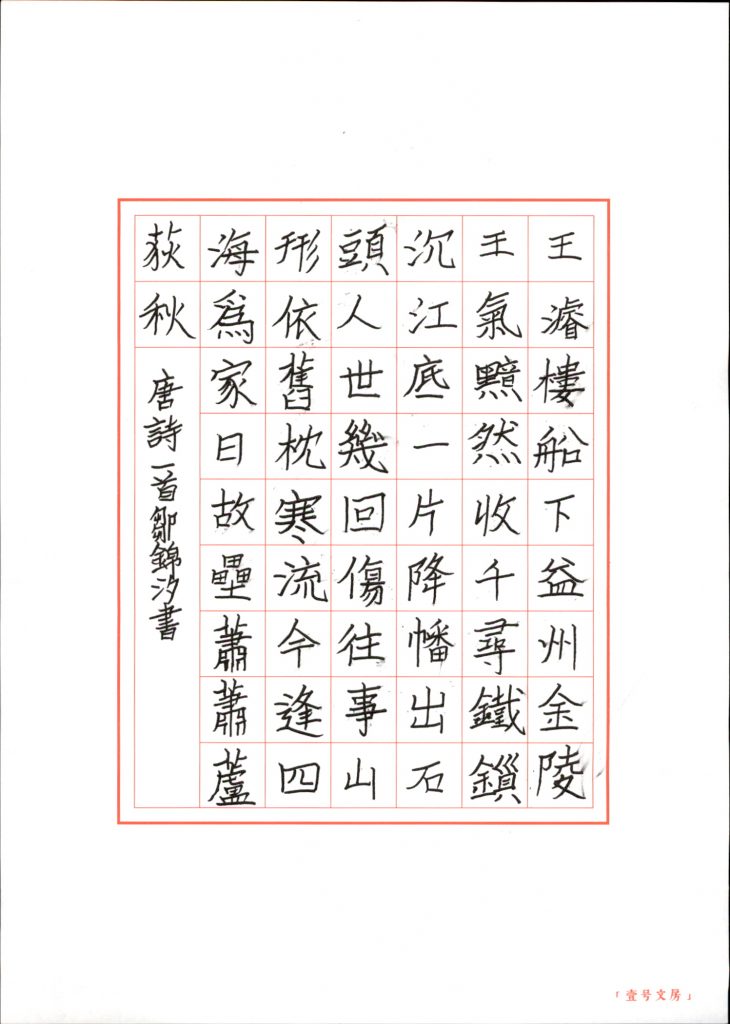 王濬樓船下益州金陵
王氣黯然收千尋鐵鎖
沉江底一片降幡出石
頭人世幾回傷往事山
形依舊枕寒流今逢四
海爲家日故壘蕭蕭蘆
荻秋
唐詩一首鄒錦汐書
「壹号文房」